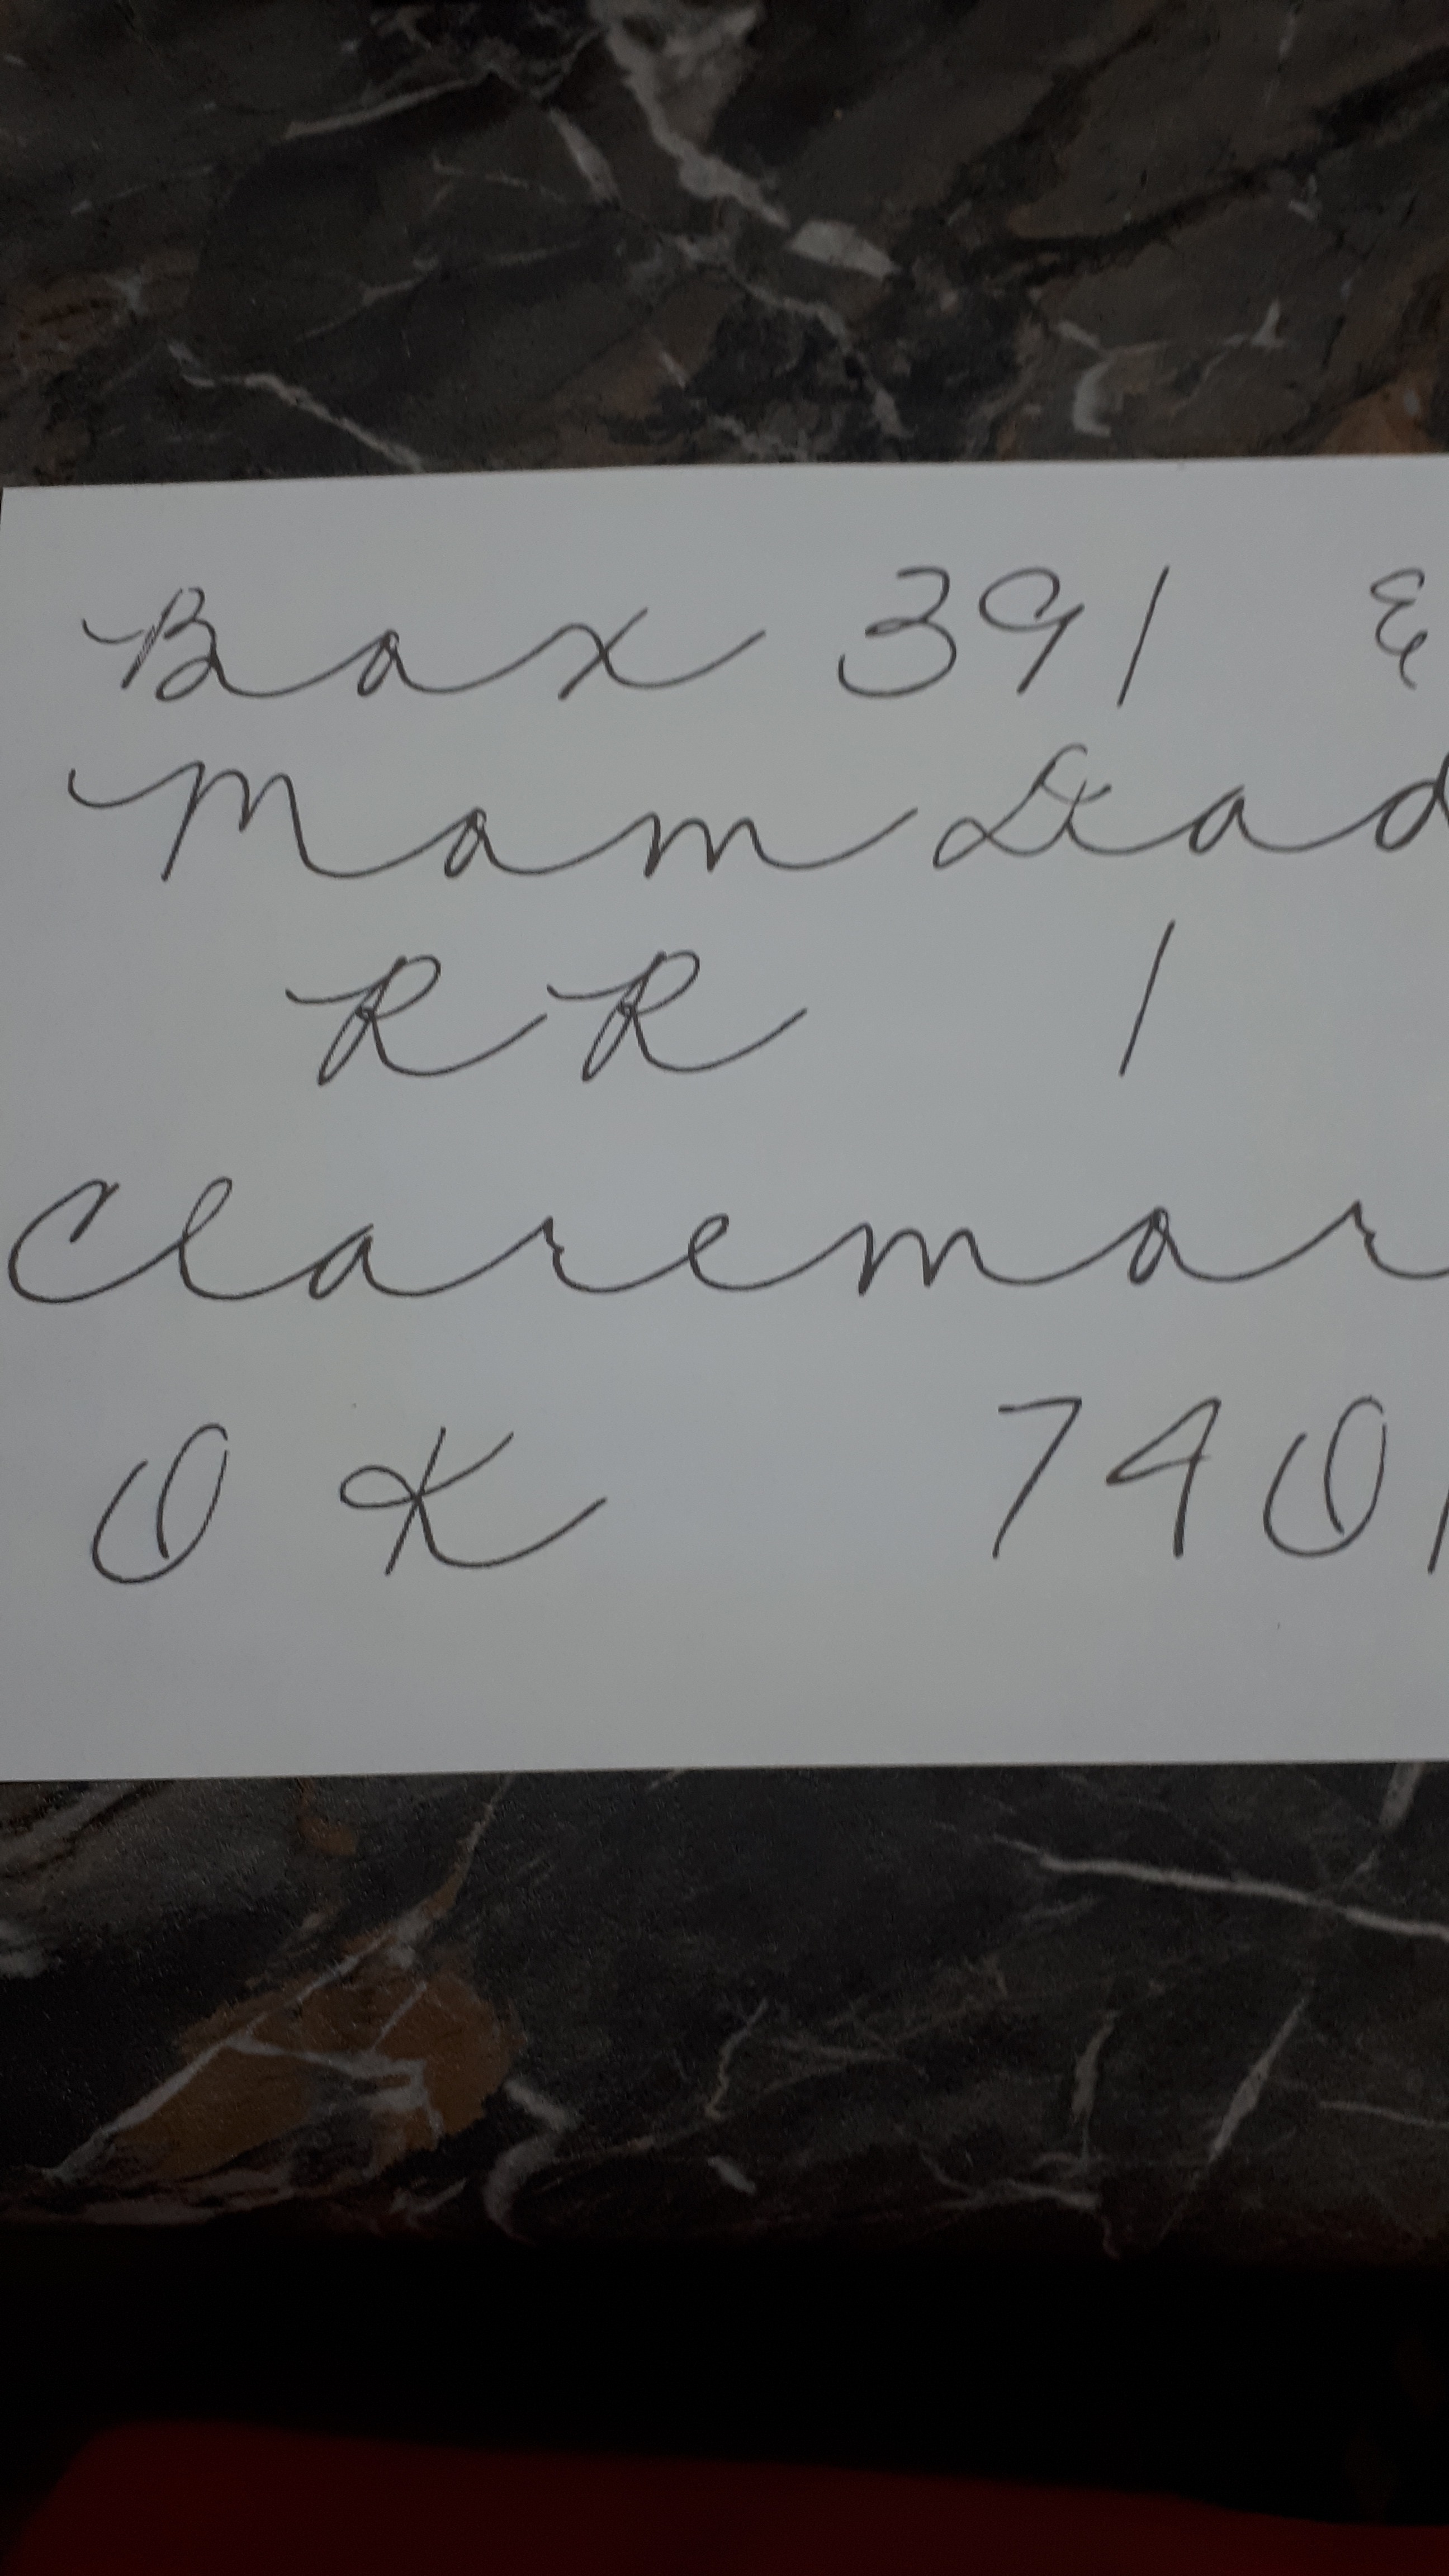 Box 391 &
Mom Dad
RR 1
Claremor
OK 740